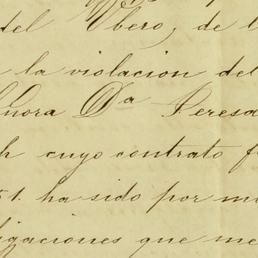 del Ubero, de l
la violacion del
ñora Dª Teresa
h cuyo contrato f
51. ha sido por m
ligaciones que me